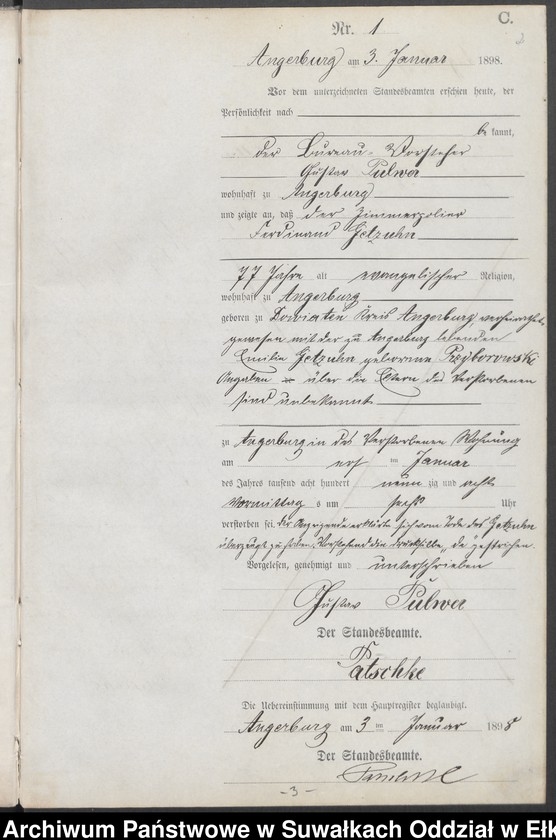 C.
2
Nr. 1
Angerburg am 3. Januar 1898.
Vor dem unterzeichneten Standesbeamten erschien heute, der
Persönlichkeit nach
be kannt,
der Bureau-Vorsteher
Gustav Pulwer
wohnhaft zu Angerburg
und zeigte an, daß der Zimmerpolier
Ferdinand Getzuhn
77 Jahre alt evangelischer Religion,
wohnhaft zu Angerburg
geboren zu Kreis Angerburg, verheirathet
gewesen mit der zu Angerburg lebenden
Emilie Getzuhn geborene Przyborowski
Angaben über die Eltern des Verstorbenen
sind unbekannt
zu Angerburg in des Verstorbenen Wohnung
am im Januar
des Jahres tausend acht hundert neun zig und acht
Vormittag s um sechs Uhr
verstorben sei. der Anzeigende erklärte sich vom Tode des Getzuhn
überzeugt zu haben. Vorstehend die Drucksilbe „de“ gestrichen.
Vorgelesen, genehmigt und unterschrieben
Gustav Pulwer
Der Standesbeamte.
Patschke
Die Uebereinstimmung mit dem Hauptregister beglaubigt.
Angerburg am 3 ten Januar 1898
Der Standesbeamte.
- 3 -
Archiwum Państwowe w Suwałkach Oddział w Ełk